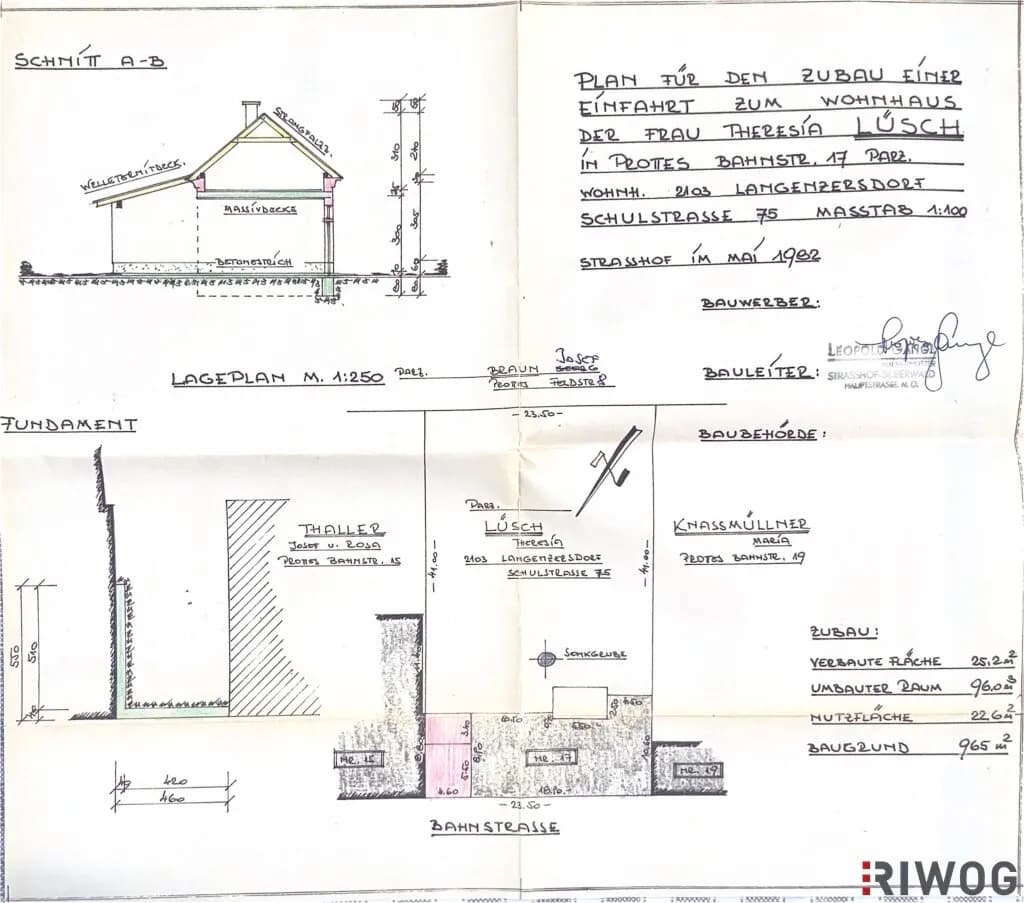 SCHNITT A-B
PLAN FÜR DEN ZUBAU EINER
EINFAHRT ZUM WOHNHAUS
DER FRAU THERESÍA LÜSCH
IN PROTTES BAHNSTR. 17 PARZ.
WOHNH. 2103 LANGENZERSDORF
SCHULSTRASSE 75 MASSTAB 1:100
STRASSHOF IM MAI 1982
BAUWERBER:
BAULEITER:
LEOPOLD GANGL
STRASSHOF-SILBERWALD
HAUPTSTRASSE N.Ö.
BAUBEHÖRDE:
STRANGFALZZ.
WELLETERNITDECK.
MASSIVDECKE
BETONESTRICH
310
240
300
305
LAGEPLAN M. 1:250
PARZ. BRAUN JOSEF
PROTTES FELDSTR. 8
-23.50-
FUNDAMENT
THALLER
JOSEF U. ROSA
PROTTES BAHNSTR. 15
PARZ.
LÜSCH
THERESÍA
2103 LANGENZERSDORF
SCHULSTRASSE 75
KNASSMÜLLNER
MARÍA
PROTES BAHNSTR. 19
-41.00-
-41.00-
550
510
SENKGRUBE
NR. 15
NR. 17
NR. 19
4.60
-23.50-
BAHNSTRASSE
420
460
ZUBAU:
VERBAUTE FLÄCHE 25,2 m²
UMBAUTER RAUM 96.0 m³
NUTZFLÄCHE 22.6 m²
BAUGRUND 965 m²
RIWOG